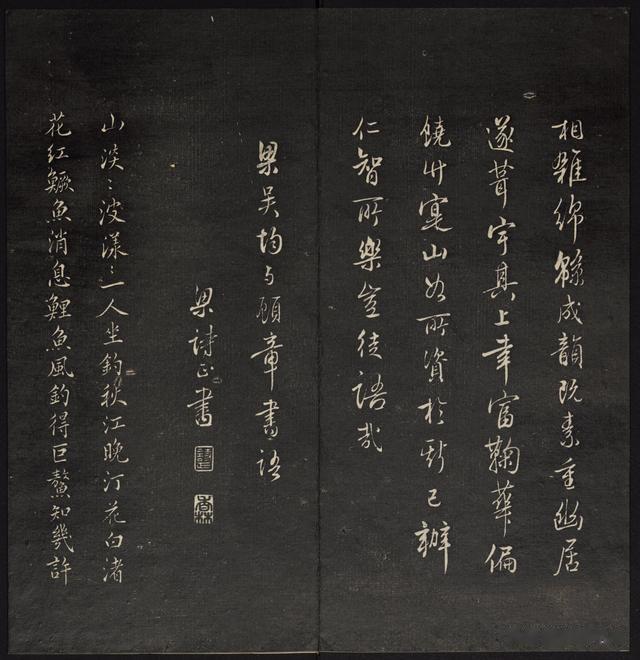 相雜綿緜成韻既素重幽居
遂葺宇其上幸富鞠華偏
饒竹寔山谷所資於斯已辦
仁智所樂豈徒語哉
梁吳均与顧章書語
梁詩正書
山淡〻波漾〻一人坐釣秋江晚汀花白渚
花紅鱖魚消息鯉魚風釣得巨鰲知幾許